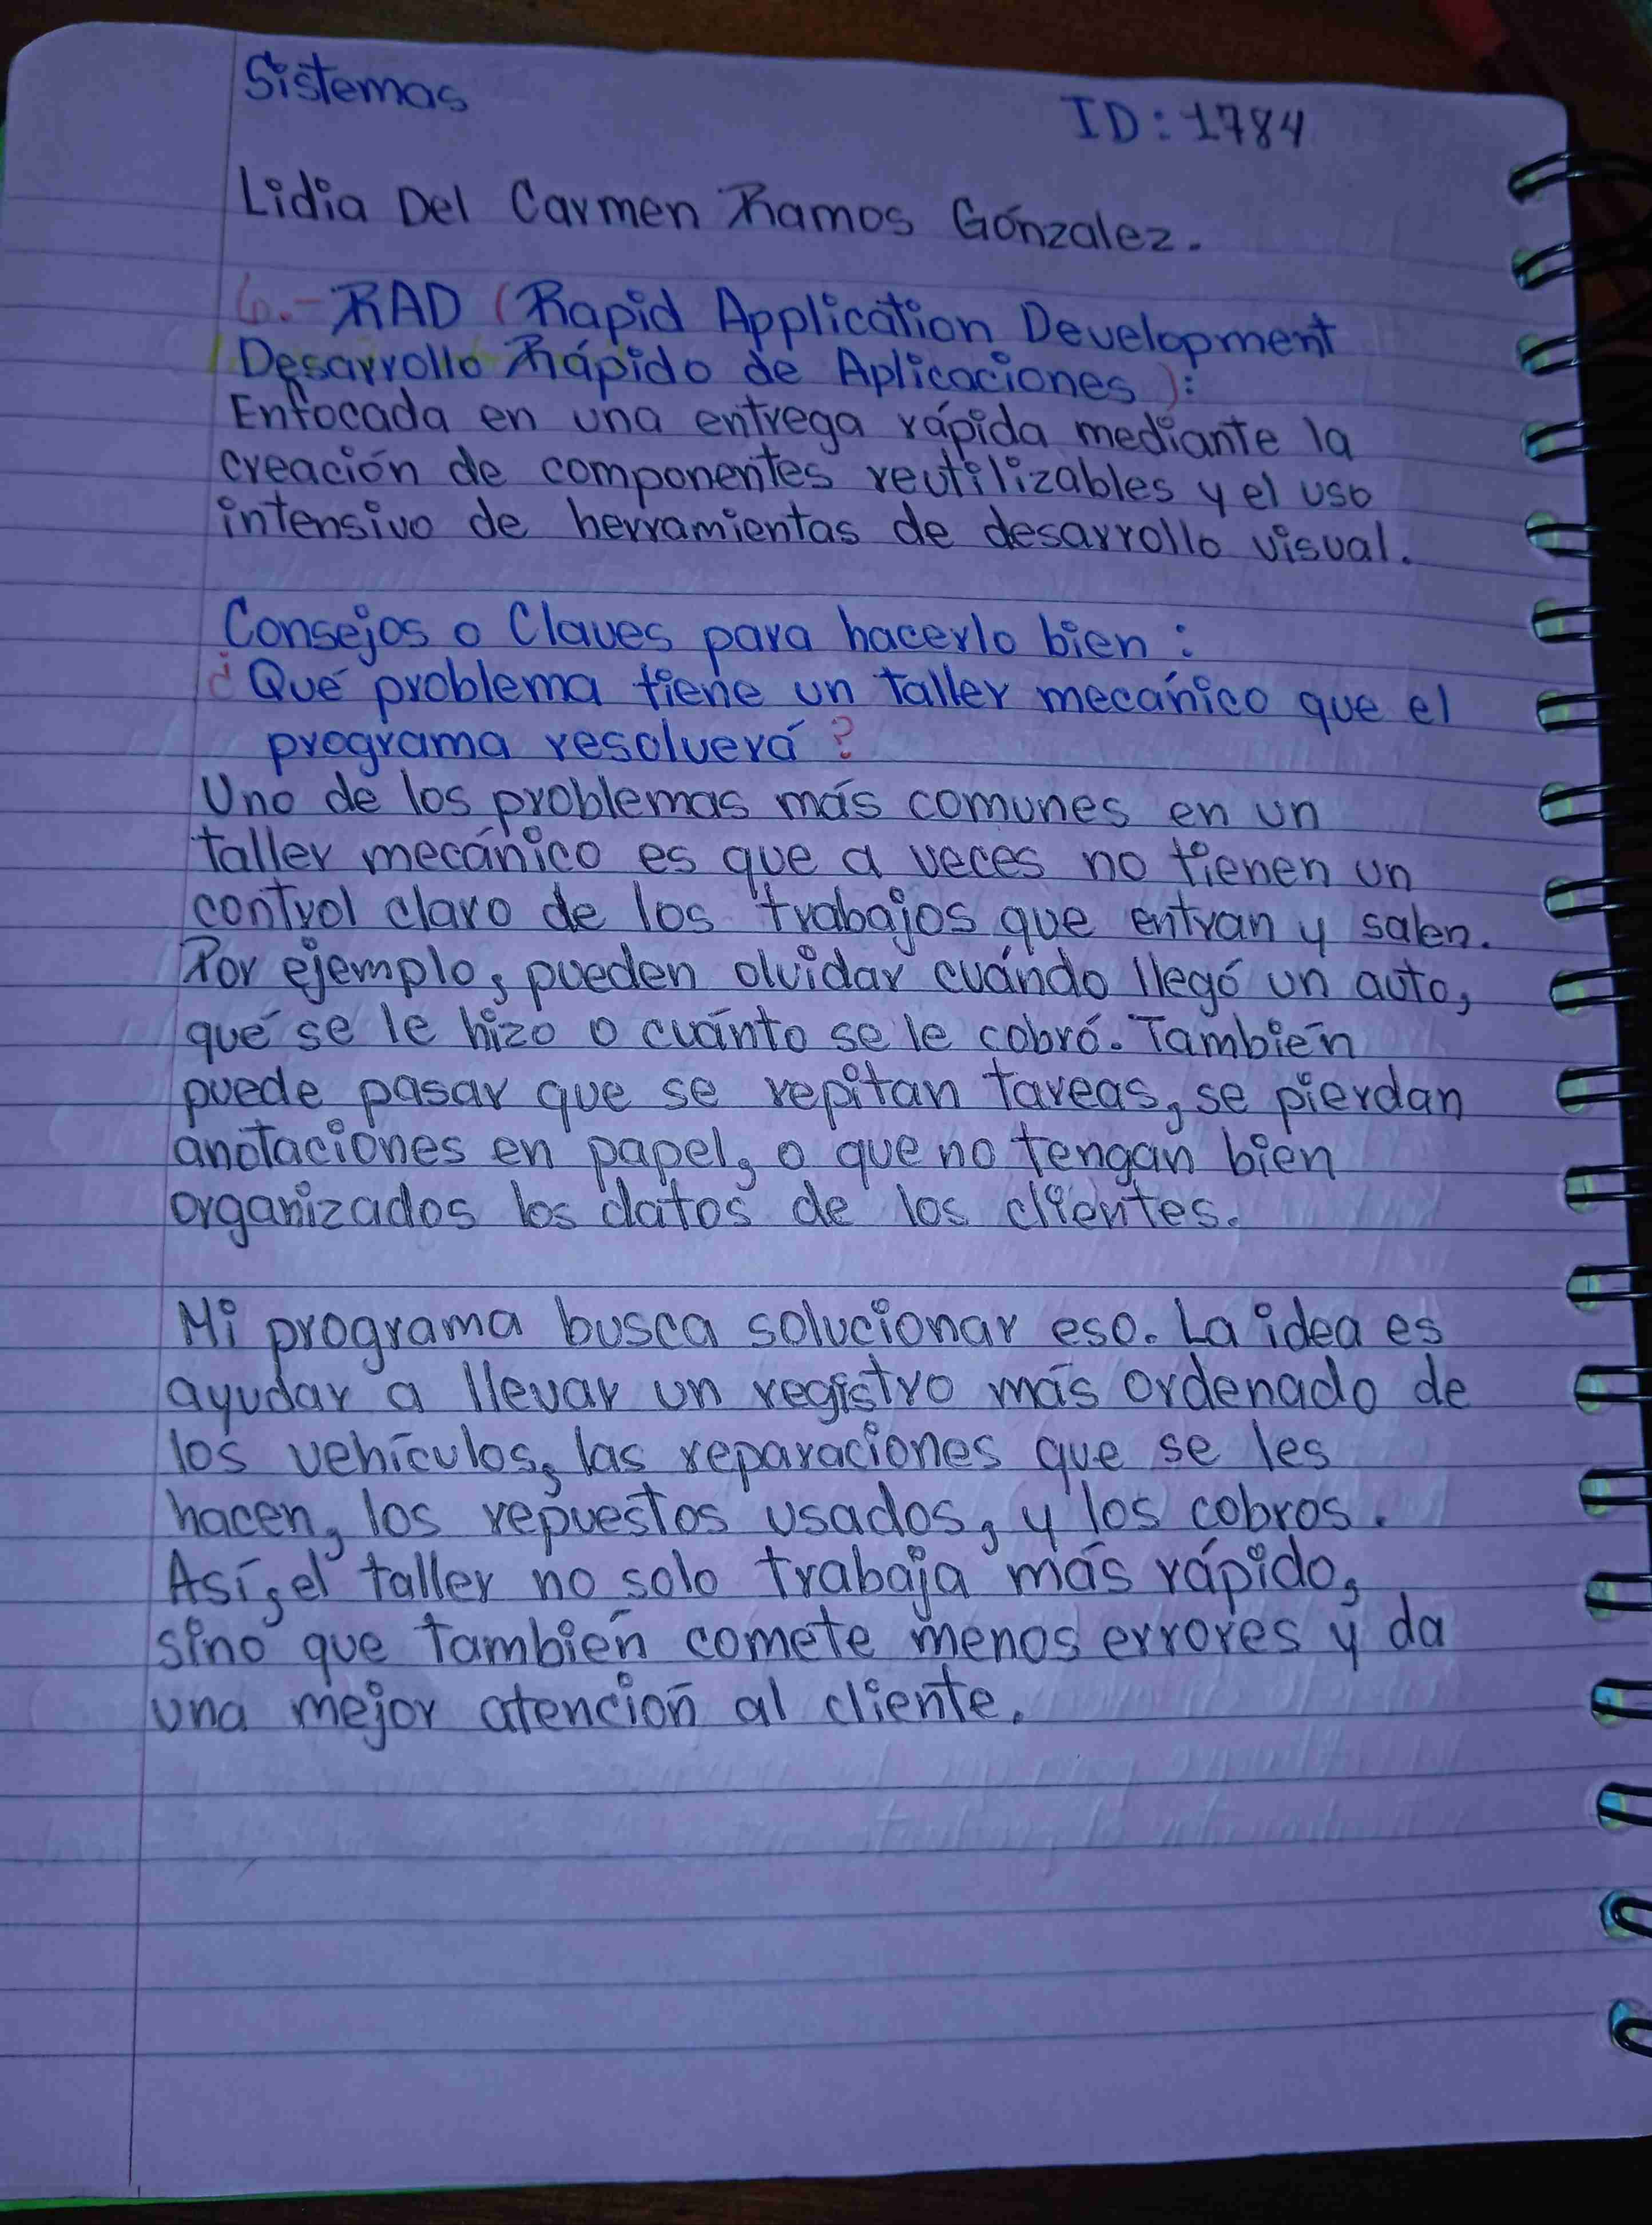 Sistemas
ID: 1784
Lidia Del Carmen Ramos Gónzalez.
6.- RAD (Rapid Application Development
Desarrollo Rápido de Aplicaciones):
Enfocada en una entrega rápida mediante la
creación de componentes reutilizables y el uso
intensivo de herramientas de desarrollo visual.
Consejos o Claves para hacerlo bien:
¿Qué problema tiene un taller mecánico que el
programa resolverá?
Uno de los problemas más comunes en un
taller mecánico es que a veces no tienen un
control claro de los trabajos que entran y salen.
Por ejemplo, pueden olvidar cuándo llegó un auto,
qué se le hizo o cuánto se le cobró. También
puede pasar que se repitan tareas, se pierdan
anotaciones en papel, o que no tengan bien
organizados los datos de los clientes.
Mi programa busca solucionar eso. La idea es
ayudar a llevar un registro más ordenado de
los vehículos, las reparaciones que se les
hacen, los repuestos usados, y los cobros.
Así, el taller no solo trabaja más rápido,
sino que también comete menos errores y da
una mejor atención al cliente.